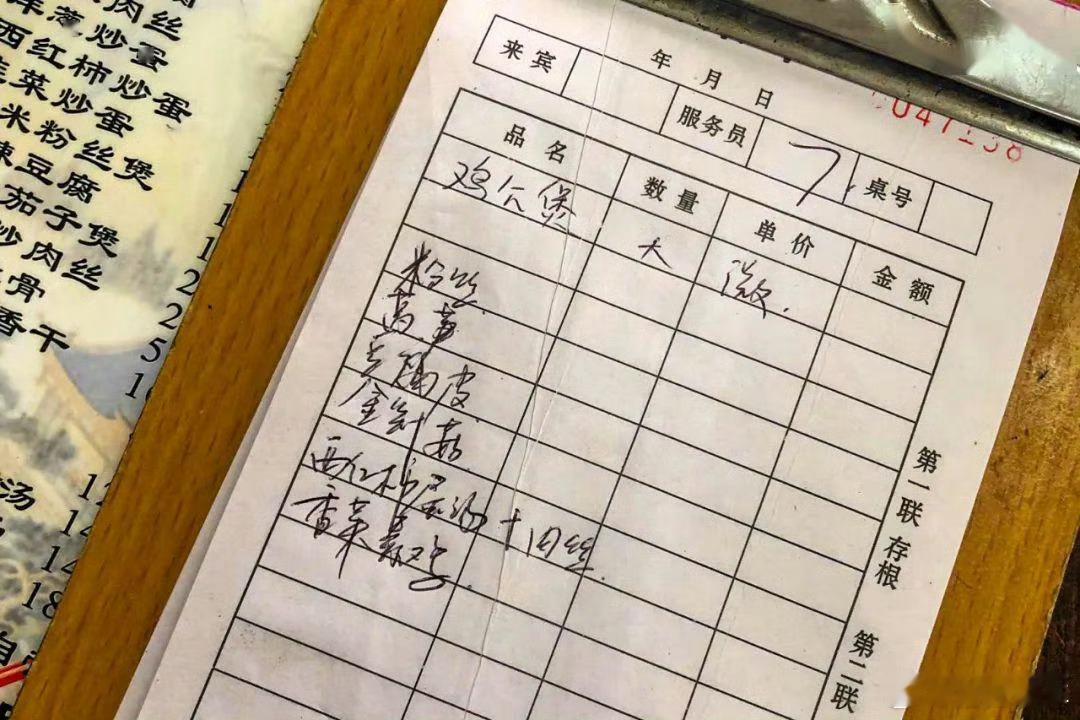 肉丝
葱炒蛋
西红柿炒蛋
菜炒蛋
米粉丝煲
辣豆腐
茄子煲
炒肉丝
骨
香干
汤
14
14
18
自
年 月 日
来宾 服务员 7. 桌号
品名 数量 单价 金额
鸡公煲 大 微.
粉丝
豆腐皮
金针菇
西红柿蛋汤+肉丝
香菜
第一联 存根
第二联